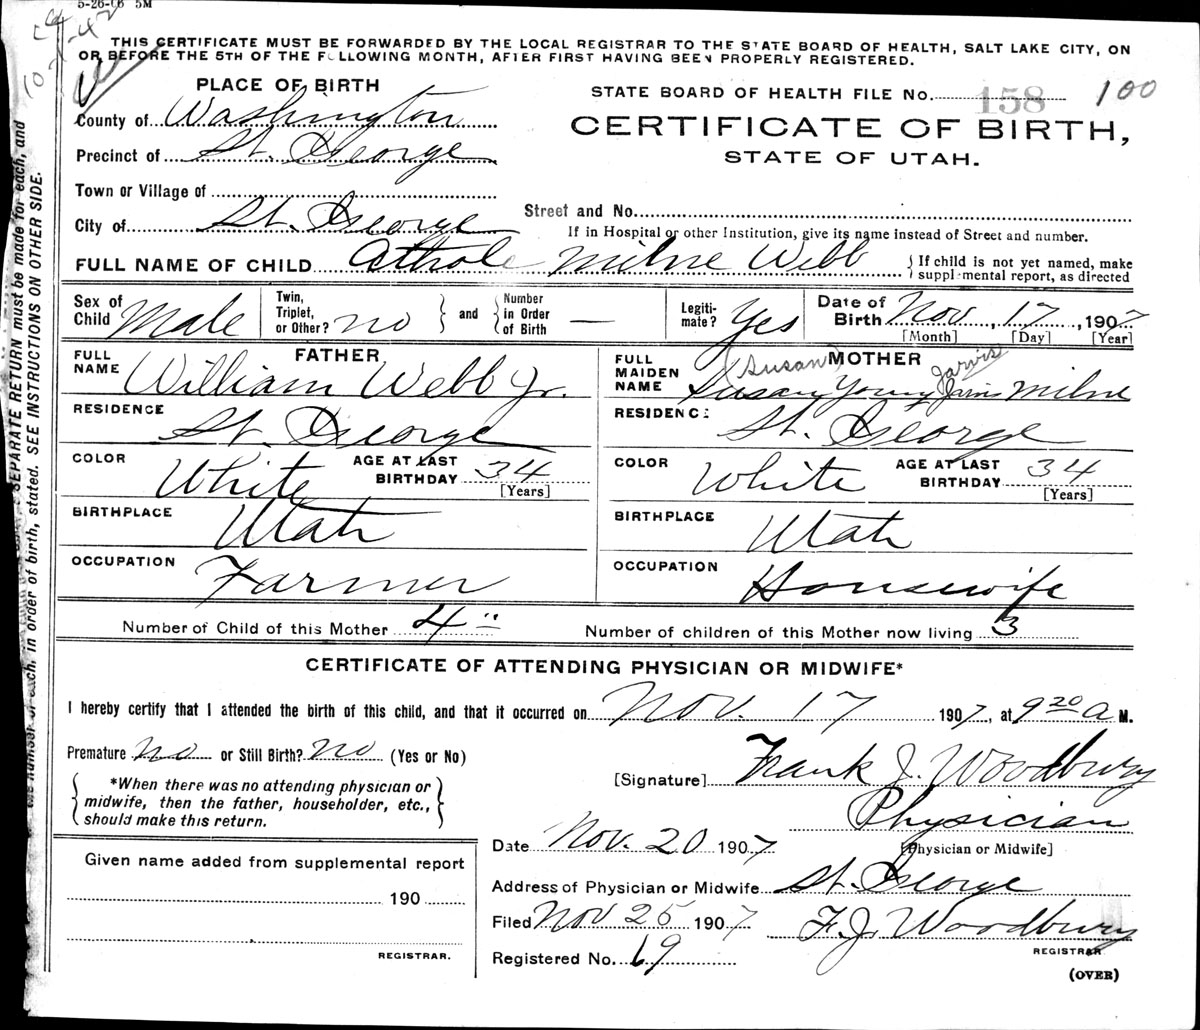 5-26-06 5M
THIS CERTIFICATE MUST BE FORWARDED BY THE LOCAL REGISTRAR TO THE STATE BOARD OF HEALTH, SALT LAKE CITY, ON
OR BEFORE THE 5TH OF THE FOLLOWING MONTH, AFTER FIRST HAVING BEEN PROPERLY REGISTERED.
PLACE OF BIRTH
STATE BOARD OF HEALTH FILE No. 158 100
County of Washington
CERTIFICATE OF BIRTH,
Precinct of St. George
STATE OF UTAH.
Town or Village of
City of St. George
Street and No.
If in Hospital or other Institution, give its name instead of Street and number.
FULL NAME OF CHILD Athole Milne Webb
If child is not yet named, make
supplemental report, as directed
Sex of Child Male
Twin, Triplet, or Other? no
and Number in Order of Birth —
Legitimate? Yes
Date of Birth Nov. 17, 1907
[Month] [Day] [Year]
FATHER
FULL NAME William Webb Jr.
RESIDENCE St. George
COLOR White AGE AT LAST BIRTHDAY 34
[Years]
BIRTHPLACE Utah
OCCUPATION Farmer
(Susan) MOTHER Jarvis
FULL MAIDEN NAME Susan Young Jarvis Milne
RESIDENCE St. George
COLOR White AGE AT LAST BIRTHDAY 34
[Years]
BIRTHPLACE Utah
OCCUPATION Housewife
Number of Child of this Mother 4"
Number of children of this Mother now living 3
CERTIFICATE OF ATTENDING PHYSICIAN OR MIDWIFE*
I hereby certify that I attended the birth of this child, and that it occurred on Nov. 17 1907, at 9 20 a M.
Premature no or Still Birth? no (Yes or No)
[Signature] Frank J. Woodbury
*When there was no attending physician or
midwife, then the father, householder, etc.,
should make this return.
Physician
[Physician or Midwife]
Date Nov. 20 1907
Address of Physician or Midwife St. George
Filed Nov 25 1907
F. J. Woodbury
REGISTRAR
Registered No. 69
(OVER)
Given name added from supplemental report
190
REGISTRAR.
SEPARATE RETURN must be made for each, and
in order of birth, stated. SEE INSTRUCTIONS ON OTHER SIDE.